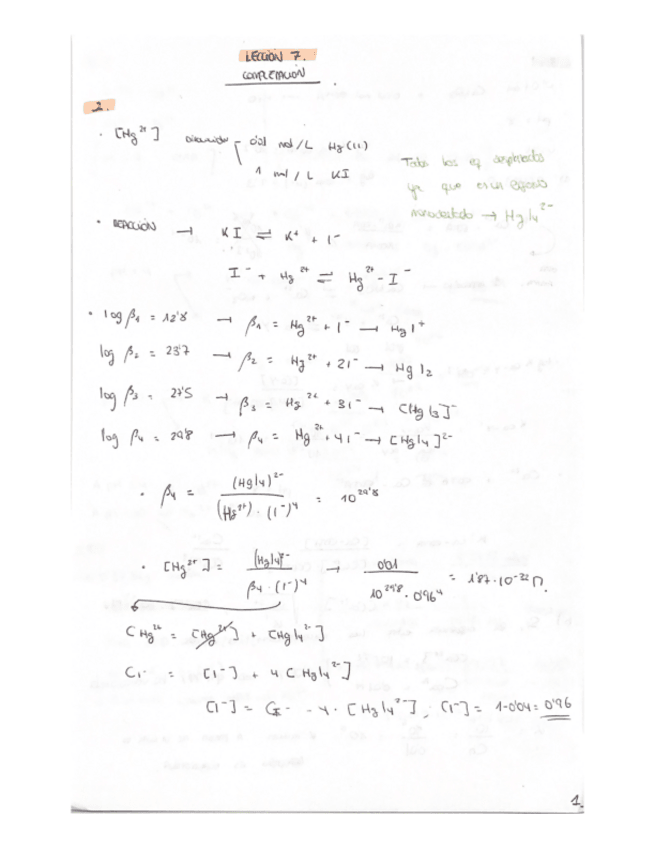 LECCIÓN 7.
COMPLEXACIÓN
2.
· [Hg²⁺] 0'01 mol/L Hg(II)
1 mol/L KI
Todos los eq
ya que es un exceso
→ HgI₄²⁻
· REACCIÓN → KI ⇌ K⁺ + I⁻
I⁻ + Hg²⁺ ⇌ Hg²⁺-I⁻
· log β₁ = 12'8 → β₁ = Hg²⁺ + I⁻ → HgI⁺
log β₂ = 23'7 → β₂ = Hg²⁺ + 2I⁻ → HgI₂
log β₃ = 27'5 → β₃ = Hg²⁺ + 3I⁻ → [HgI₃]⁻
log β₄ = 29'8 → β₄ = Hg²⁺ + 4I⁻ → [HgI₄]²⁻
· β₄ = (HgI₄)²⁻ / (Hg²⁺) · (I⁻)⁴ = 10²⁹'⁸
· [Hg²⁺] = (HgI₄)²⁻ / β₄ · (I⁻)⁴ → 0'01 / 10²⁹'⁸ · 0'96⁴ = 1'87 · 10⁻³² M.
C Hg²⁺ = [Hg²⁺] + [HgI₄²⁻]
C I⁻ = [I⁻] + 4[HgI₄²⁻]
[I⁻] = C I⁻ - 4 · [HgI₄²⁻] ; [I⁻] = 1-0'04 = 0'96
1.